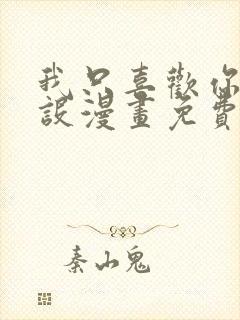 我只喜歡你
設漫畫免費
秦山鬼